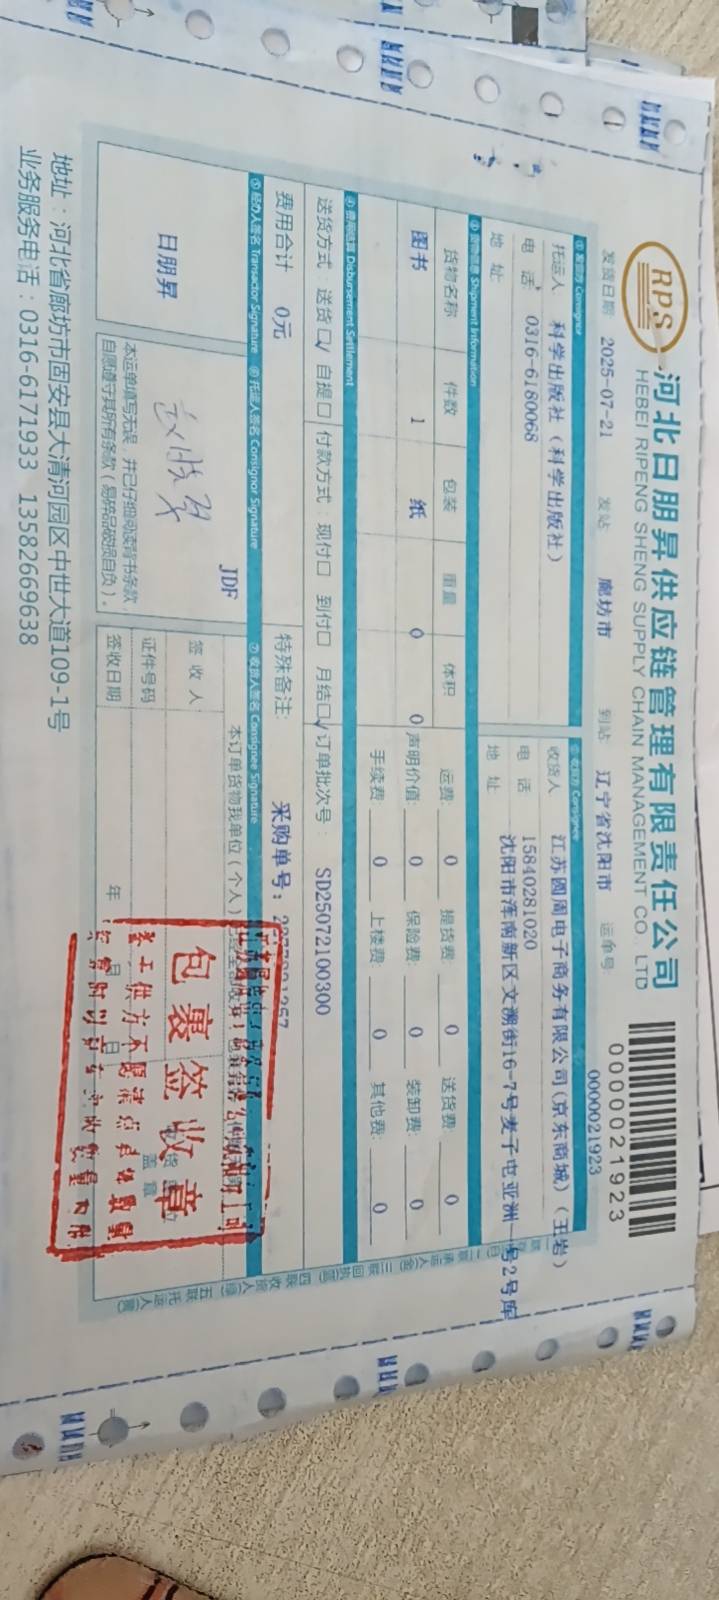 RPS
河北日朋昇供应链管理有限责任公司
HEBEI RIPENG SHENG SUPPLY CHAIN MANAGEMENT CO., LTD
0000021923
发货日期 2025-07-21 发站 廊坊市 到站 辽宁省沈阳市 运单号: 0000021923
①发货方 Consignor ②收货方 Consignee
托运人 科学出版社（科学出版社） 收货人 江苏圆周电子商务有限公司(京东商城)（王岩）
电 话 0316-6180068 电 话 15840281020
地 址 地 址 沈阳市浑南新区文溯街16-7号麦子屯亚洲一号2号库
③货物信息 Shipment Information
货物名称 件数 包装 重量 体积 运费: 0 提货费: 0 送货费: 0
图书 1 纸 0 0 声明价值: 0 保险费: 0 装卸费: 0
手续费: 0 上楼费: 0 其他费: 0
④费用结算 Disbursement Settlement
送货方式 送货☐√ 自提☐ 付款方式 现付☐ 到付☐ 月结☐√ 订单批次号: SD25072100300
费用合计 0元 特殊备注: 采购单号:
⑤经办人签名 Transactor Signature ⑥托运人签名 Consignor Signature ⑦收货人签名 Consignee Signature
JDF 本订单货物我单位(个人)
日朋昇 签 收 人
包裹签收章
证件号码
本运单填写无误，并已仔细阅读背书条款，
自愿遵守其所有条款(易碎品破损自负)。
签收日期 年 月 日
地址：河北省廊坊市固安县大清河园区中世大道109-1号
业务服务电话：0316-6171933 13582669638